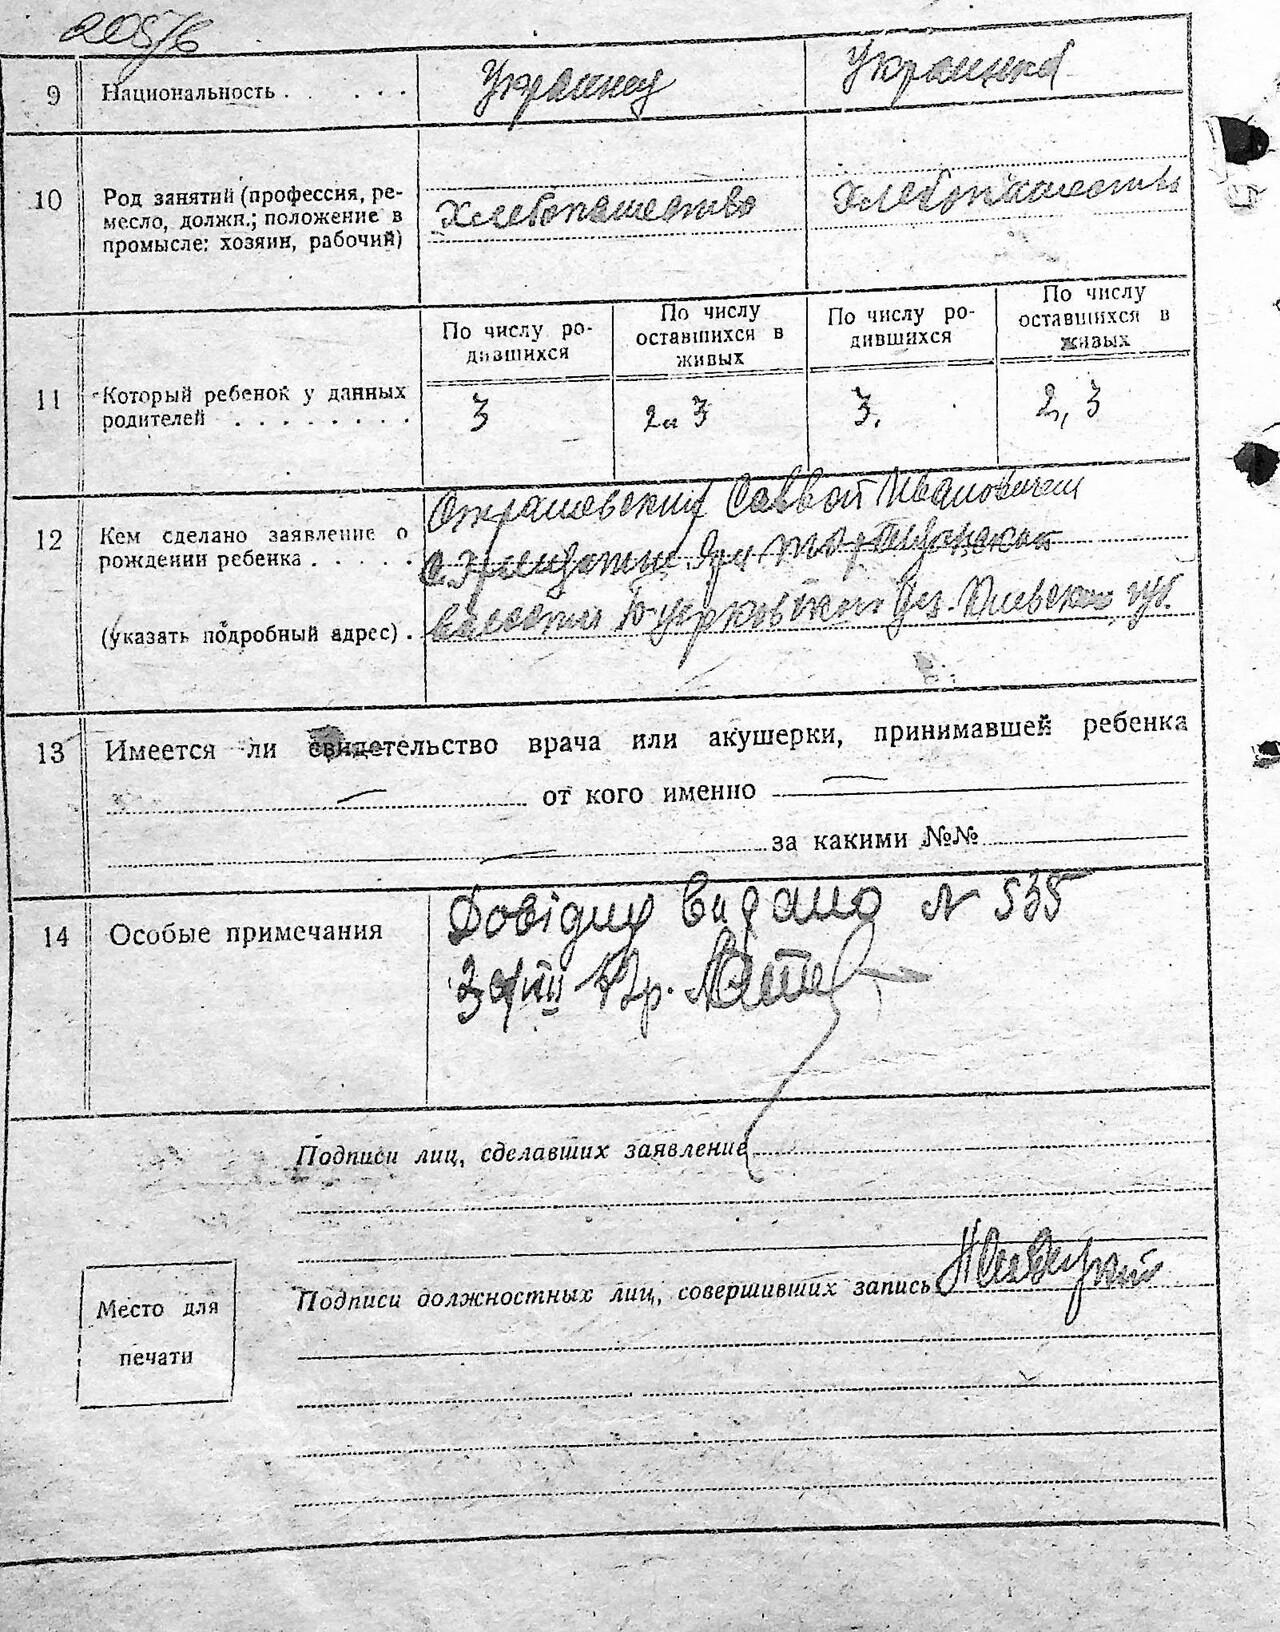 205/6
9 Национальность . . . . Украинец Украинка
10 Род занятий (профессия, ре-
месло, должн.; положение в
промысле: хозяин, рабочий)
Хлебопашество Хлебопашество
11 Который ребенок у данных
родителей . . . . . . . .
По числу ро-
дившихся
По числу
оставшихся в
живых
По числу ро-
дившихся
По числу
оставшихся в
живых
3 2 3 3. 2, 3
12 Кем сделано заявление о
рождении ребенка . . . . .
(указать подробный адрес) .
Саввой Ивановичем
с.
волости Б-церковской Уез. Киевской губ.
13 Имеется ли свидетельство врача или акушерки, принимавшей ребенка
— от кого именно —
— за какими №№
14 Особые примечания
Довідку видано N 535
Подписи лиц, сделавших заявление
Подписи должностных лиц, совершивших запись
Место для
печати